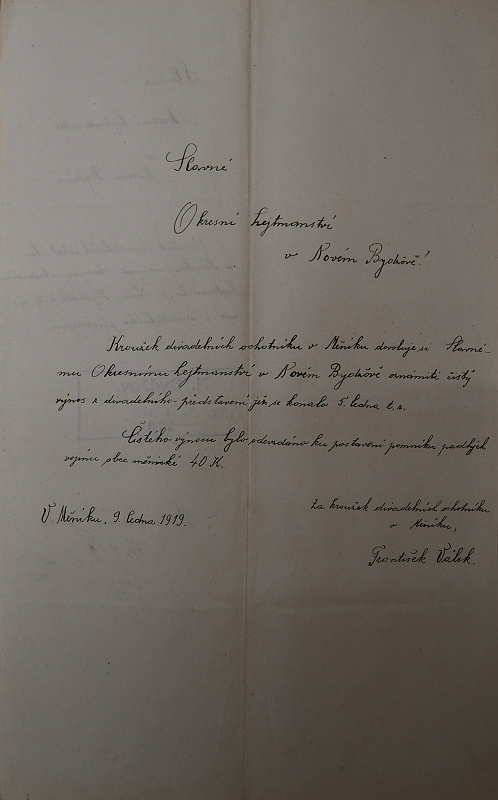 Slavné
Okresní hejtmanství
v Novém Bydžově!
Kroužek divadelních ochotníku v Měníku dovoluje si Slavné-
mu Okresnímu hejtmanství v Novém Bydžově oznámiti čistý
výnos z divadelního představení jěž se konalo 5. ledna t. r.
Čistého výnosu bylo odevzdáno ku postavení pomníku padlých
vojínu obce měnické 40 K.
V Měníku, 9. ledna 1919.
Za kroužek divadelních ochotníku
v Měníku,
František Válek.